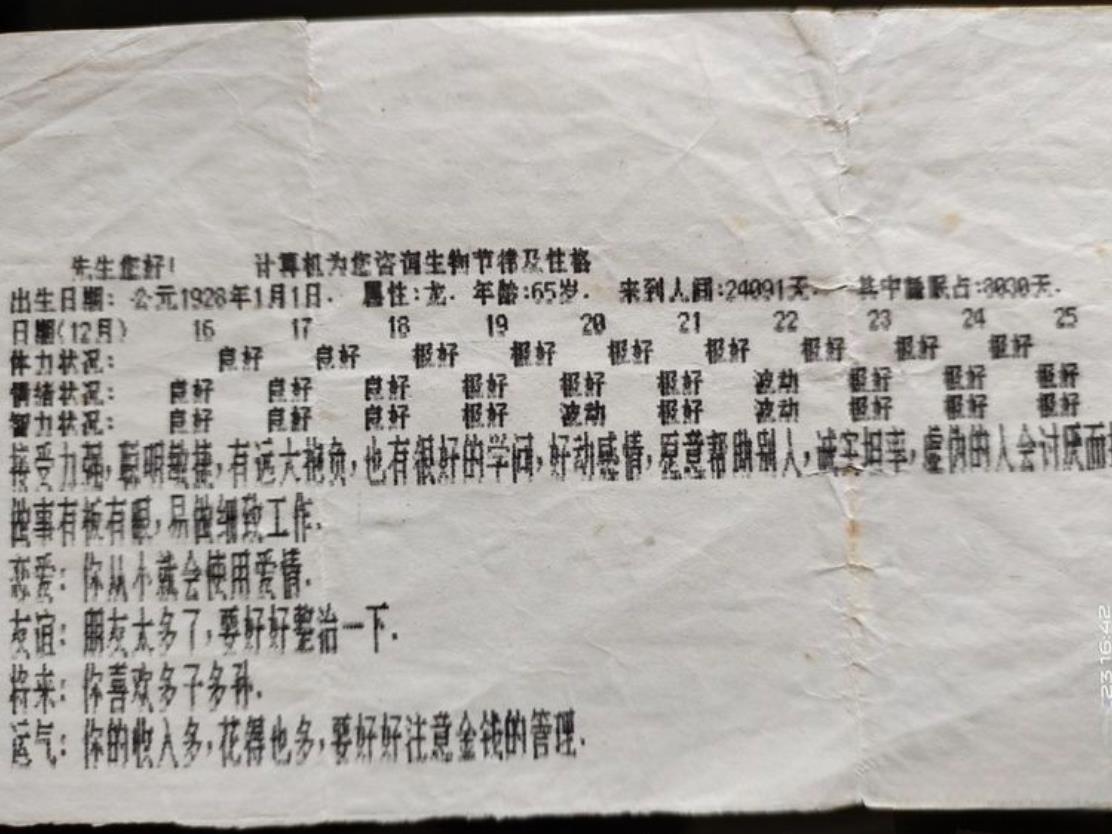 先生您好! 计算机为您咨询生物节律及性格
出生日期: 公元1928年1月1日. 属性:龙. 年龄:65岁. 来到人间:24091天. 其中睡眠占:8030天.
日期(12月) 16 17 18 19 20 21 22 23 24 25
体力状况: 良好 良好 极好 极好 极好 极好 极好 极好 极好
情绪状况: 良好 良好 良好 极好 极好 极好 波动 极好 极好 极好
智力状况: 良好 良好 良好 极好 波动 极好 波动 极好 极好 极好
接受力强,聪明敏捷,有远大抱负,也有很好的学问,好动感情,愿意帮助别人,诚实坦率,虚伪的人会讨厌而
做事有板有眼,易做细致工作.
恋爱: 你从小就会使用爱情.
友谊: 朋友太多了,要好好整治一下.
将来: 你喜欢多子多孙.
运气: 你的收入多,花得也多,要好好注意金钱的管理.
23 16:42